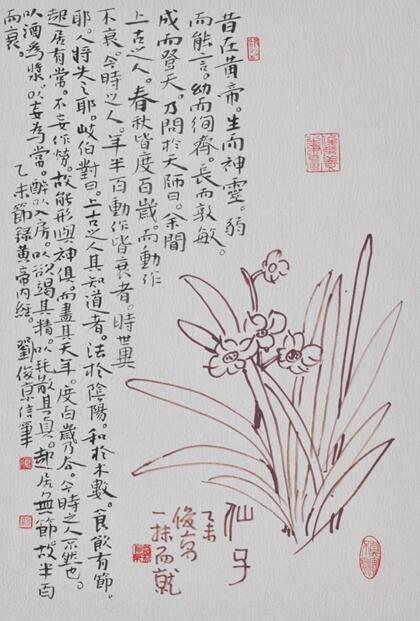 昔在黄帝。生而神靈。弱
而能言。幼而徇齊。長而敦敏。
成而登天。乃問於天師曰。余聞
上古之人。春秋皆度百歲。而動作
不衰。今時之人。年半百動作皆衰者。時世異
耶。人将失之耶。岐伯對曰。上古之人其知道者。法於陰陽。和於术數。食飲有節。
起居有常。不妄作勞。故能形與神俱。而盡其天年。度百歲乃去。今時之人不然也。
以酒為漿。以妄為常。醉以入房。以欲竭其精。以耗散其真。起居無節。故半百
而衰。
乙未節録黄帝内經。劉俊京信筆
仙子
乙未
俊京
一抹而就